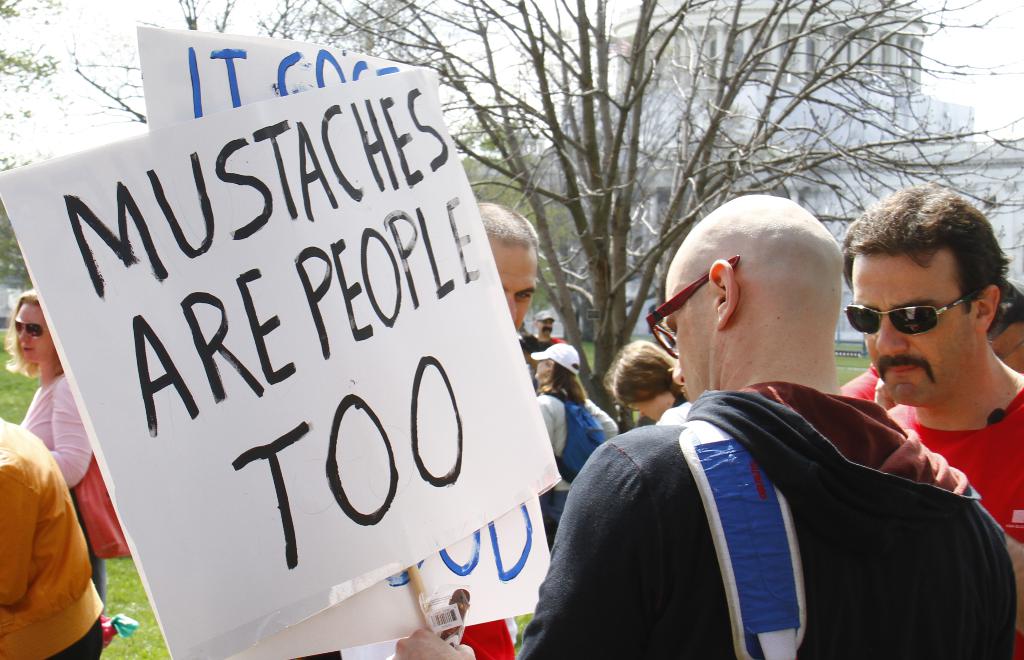 IT
MUSTACHES
ARE PEOPLE
TOO